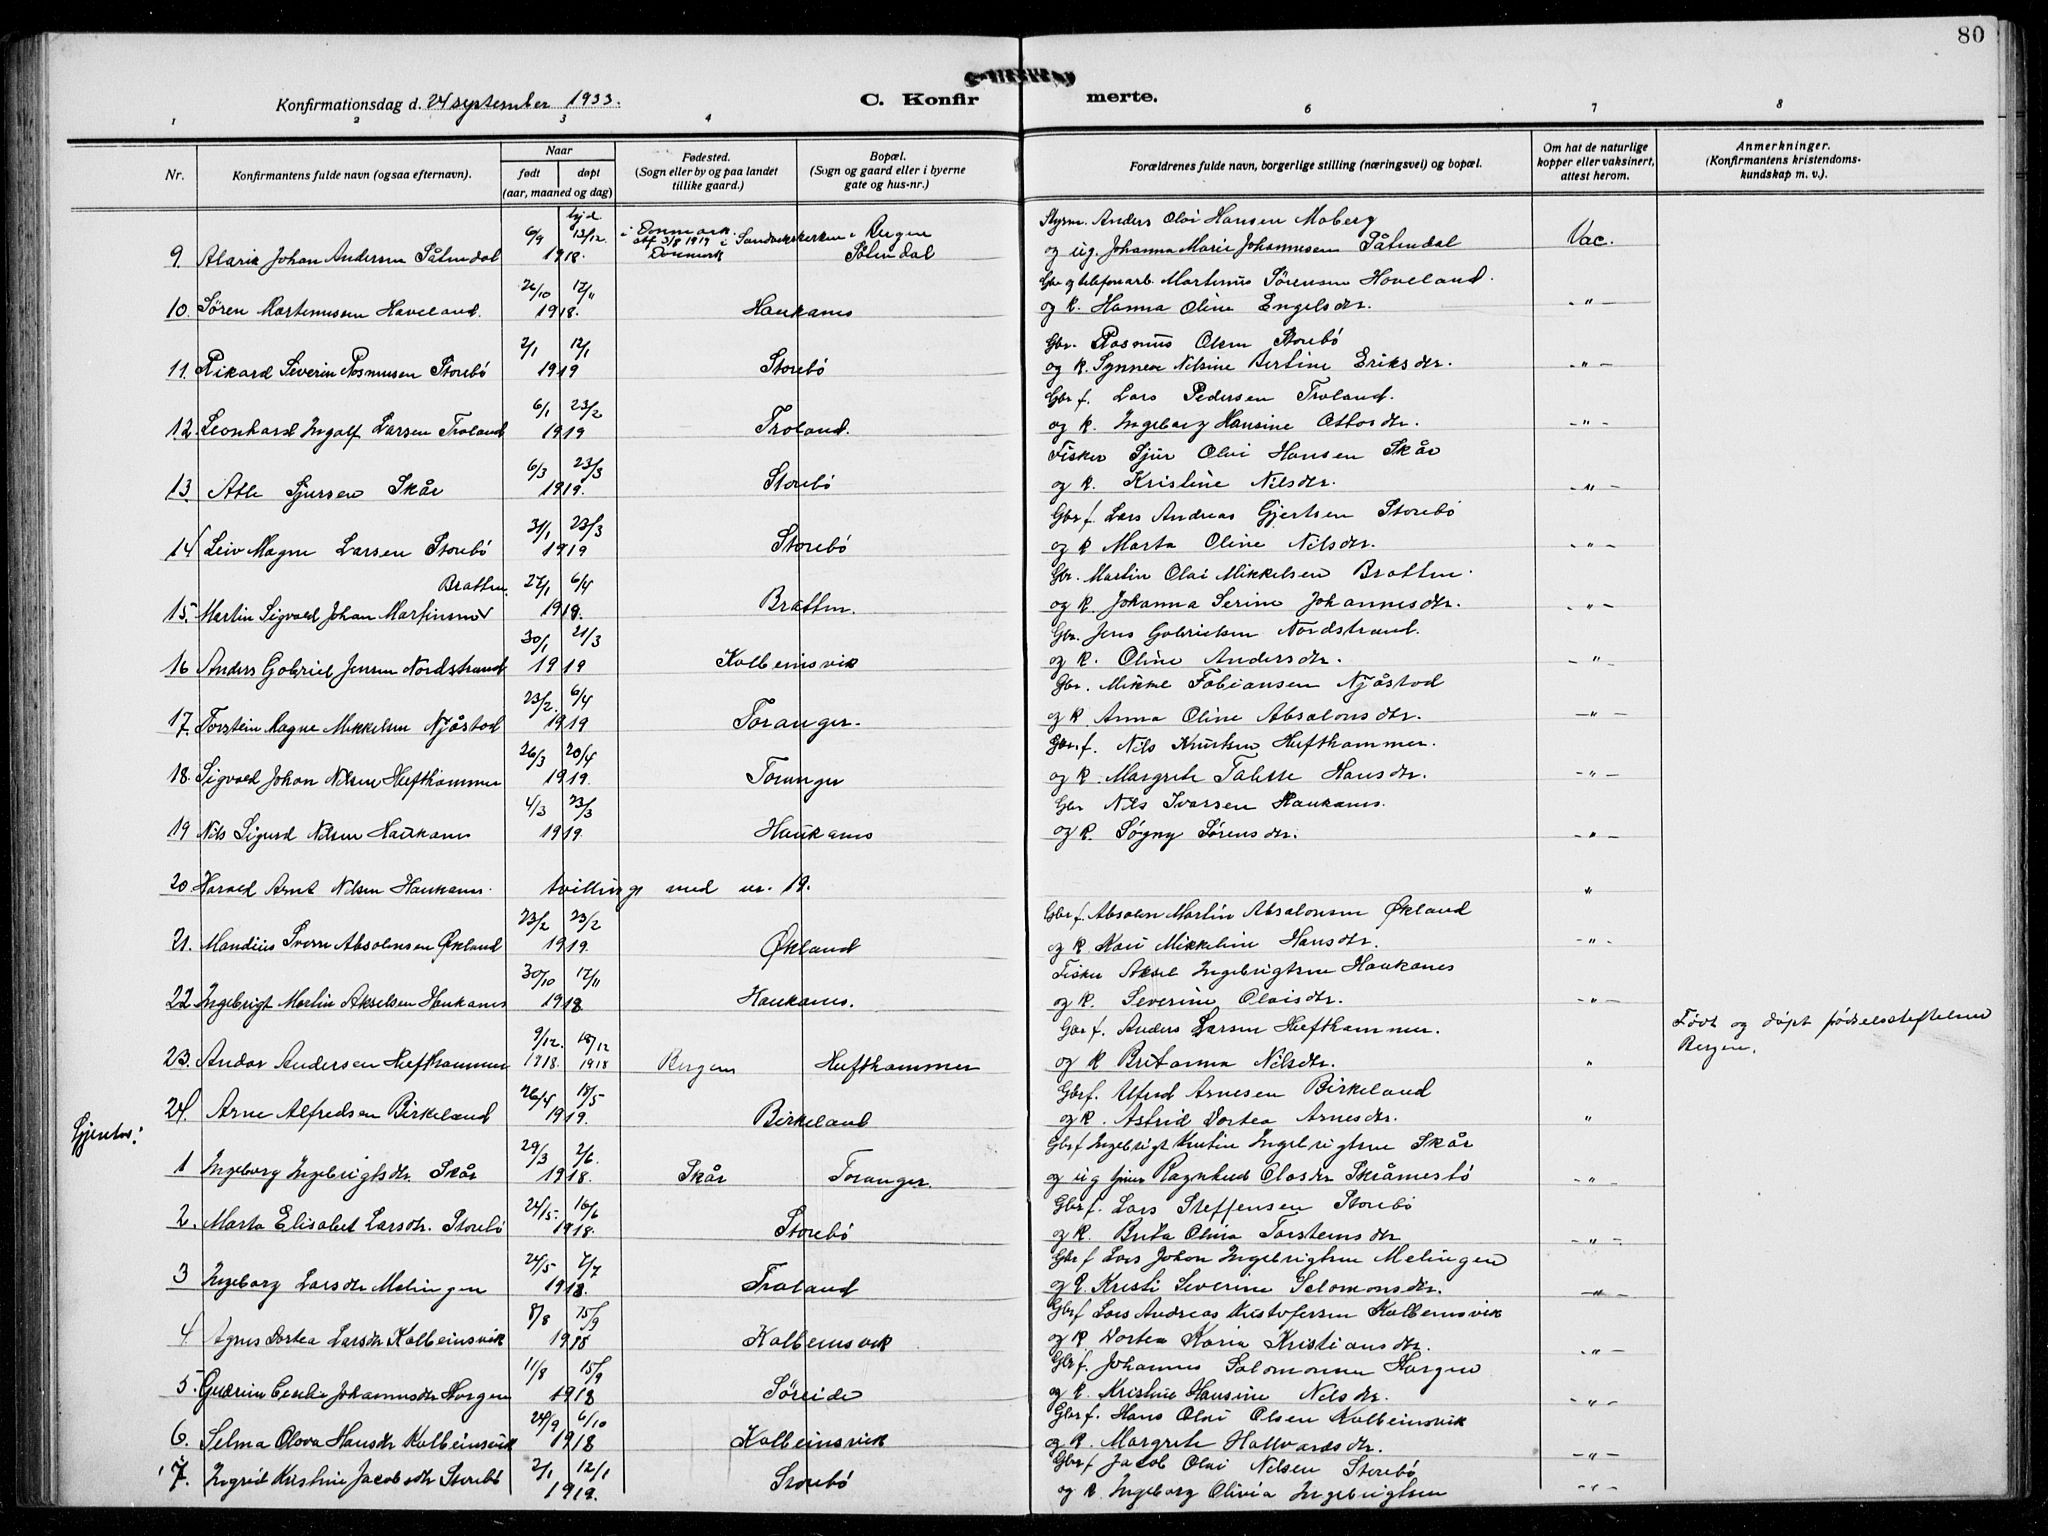 80
Konfirmationsdag d. 24 september 1933.
C. Konfirmerte.
1 2 3 4 6 7 8
Nr. Konfirmantens fulde navn (ogsaa efternavn). Naar født døpt (aar, maaned og dag) Fødested. (Sogn eller by og paa landet tillike gaard.) Bopæl. (Sogn og gaard eller i byerne gate og hus-nr.) Forældrenes fulde navn, borgerlige stilling (næringsvei) og bopæl. Om hat de naturlige kopper eller vaksinert, attest herom. Anmerkninger. (Konfirmantens kristendomskundskap m. v.).
6/9 hjd 13/12 i Danmark stf 3/8 1919 i Sandvikskirken i Bergen Styrm. Anders Olai Hansen Moberg
9. Alarik Johan Andersen Såtendal 1918. Danmark Såtendal og ug. Johanna Marie Johannesen Såtendal Vac.
26/10 17/11 Gbr og telefonarb. Martinus Sørensen Haveland.
10. Søren Martinusen Haveland. 1918. Haukanes og k. Hanna Oline Engelsdr. -"-
2/1 12/1 Gbr. Rasmus Olsen Storebø
11. Rikard Severin Rasmusen Storebø 1919 Storebø og k. Synneve Nilsine Bertine Eriksdr. -"-
6/1 23/2 Gbr f. Lars Pedersen Troland.
12. Leonhard Ingolf Larsen Troland 1919 Troland. og k. Ingeborg Hansine Ottosdr. -"-
6/3 23/3 Fisker Sjur Olai Hansen Skår
13. Atle Sjursen Skår 1919. Storebø og k. Kristine Nilsdr. -"-
31/1 23/3 Gbr f. Lars Andreas Gjertsen Storebø
14 Leiv Magne Larsen Storebø 1919 Storebø og k Marta Oline Nilsdr. -"-
Bratten. 27/1 6/4 Gbr. Martin Olai Mikkelsen Bratten.
15. Martin Sigvald Johan Martinsen 1918. Bratten. og k. Johanna Serine Johannesdr. -"-
30/1 21/3 Gbr. Jens Gabrielsen Nordstrand.
16 Anders Gabriel Jensen Nordstrand 1919 Kolbeinsvik og k. Oline Andersdr. -"-
23/2. 6/4 Gbr. Mikkel Fabiansen Njåstad
17. Torstein Magne Mikkelsen Njåstad 1919 Toranger. og k. Anna Oline Absalonsdr. -"-
26/3 20/4 Gbr. f. Nils Knutsen Hufthammer.
18. Sigvald Johan Nilsen Hufthammer 1919. Toranger og k. Margrete Talette Hansdr. -"-
4/3 23/3 Gbr Nils Ivarsen Haukanes.
19 Nils Sigurd Nilsen Haukanes 1919. Haukanes og k. Søgny Sørensdr. -"-
20 Harald Arnt Nilsen Haukanes. tvilling med nr. 19. "
23/2 23/2 Gbr f. Absalon Martin Absalonsen Økland
21. Mandius Sverre Absalonsen Økland 1919. Økland og k Kari Mikkeline Hansdr. -"-
30/10 17/11 Fisker Aksel Ingebrigtsen Haukanes
22. Ingebrigt Martin Akselsen Haukanes 1918 Haukanes. og k. Severine Olaisdr. -"-
9/12. 18/12 Gbr f. Anders Larsen Hufthammer. Født og døpt fødselsstiftelsen
23. Andor Andersen Hufthammer 1918. 1918 Bergen Hufthammer og k Britanna Nilsdr. " Bergen.
26/4 18/5 Gbr f. Alfred Arnesen Birkeland
24. Arne Alfredsen Birkeland 1919. Birkeland og k. Astrid Dortea Arnesdr. "
Gjenter:
29/3 2/6. Gbr f Ingebrigt Kristian Ingebrigtsen Skår
1 Ingeborg Ingebrigtsdr. Skår 1918. Skår Toranger. og ug Ragnhild Olasdr Skråmestø -"-
24/5. 16/6 Gbr f. Lars Steffensen Storebø
2. Marta Elisabet Larsdr. Storebø 1918. Storebø og k. Brita Olina Torsteinsdr -"-
24/5 7/7 Gbr f Lars Johan Ingebrigtsen Melingen
3 Ingeborg Larsdr Melingen 1918. Troland og k. Kristi Severine Salomonsdr. -"-
8/8 15/9 Gbr f Lars Andreas Kristofersen Kolbeinsvik
4 Agnes Dortea Larsdr Kolbeinsvik 1918 Kolbeinsvik og k Dortea Karia Kristiansdr. -"-
11/8 15/9 Gbr f. Johannes Salomonsen Horgen
5. Gudrun Cecilie Johannesdr Horgen 1918 Søreide og k. Kristine Hansine Nilsdr. -"-
24/9 6/10 Gbr f. Hans Olai Olsen Kolbeinsvik
6. Selma Olava Hansdr Kolbeinsvik 1918 Kolbeinsvik og k. Margrete Hallvardsdr. -"-
2/1 12/1 Gbr f Jacob Olai Nilsen Storebø
7. Ingrid Kristine Jacobsdr Storebø 1919. Storebø og k. Ingeborg Olivia Ingebrigtsen -"-